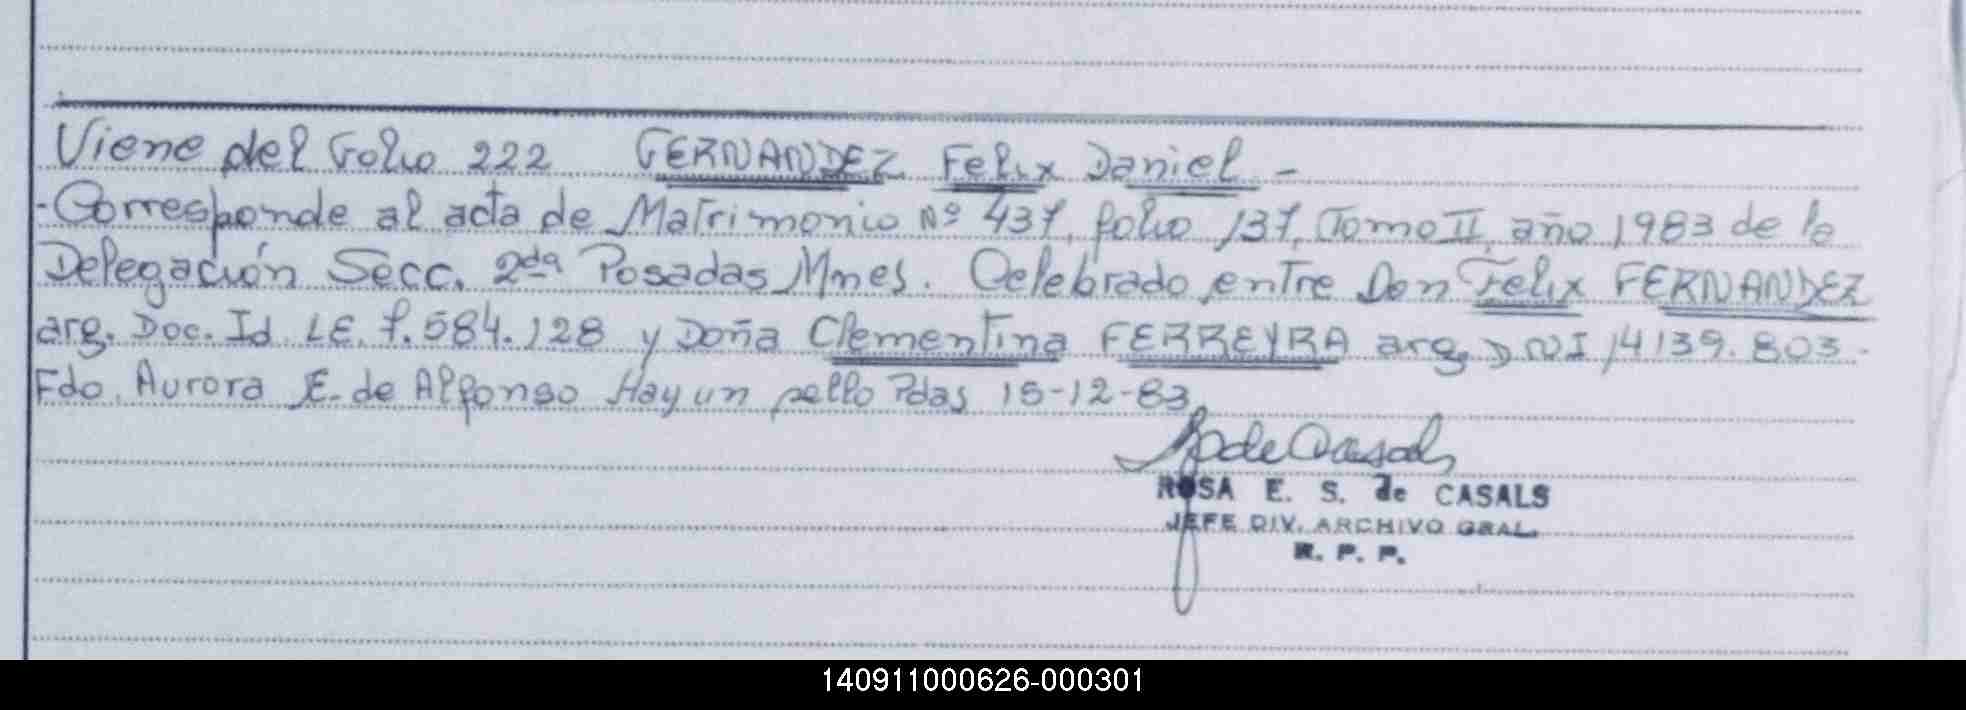 Viene del Folio 222 FERNANDEZ Felix Daniel -
- Corresponde al acta de Matrimonio Nº 437, folio 137, Tomo II, año 1983 de la
Delegación Secc. 2da Posadas Mnes. Celebrado entre Don Felix FERNANDEZ
arg. Doc. Id. LE. 7.584.128 y Doña Clementina FERREYRA arg. DNI 14139.803.
Fdo. Aurora E. de Alfonso Hay un sello Pdas 15-12-83
ROSA E. S. de CASALS
JEFE DIV. ARCHIVO GRAL.
R. P. P.
140911000626-000301